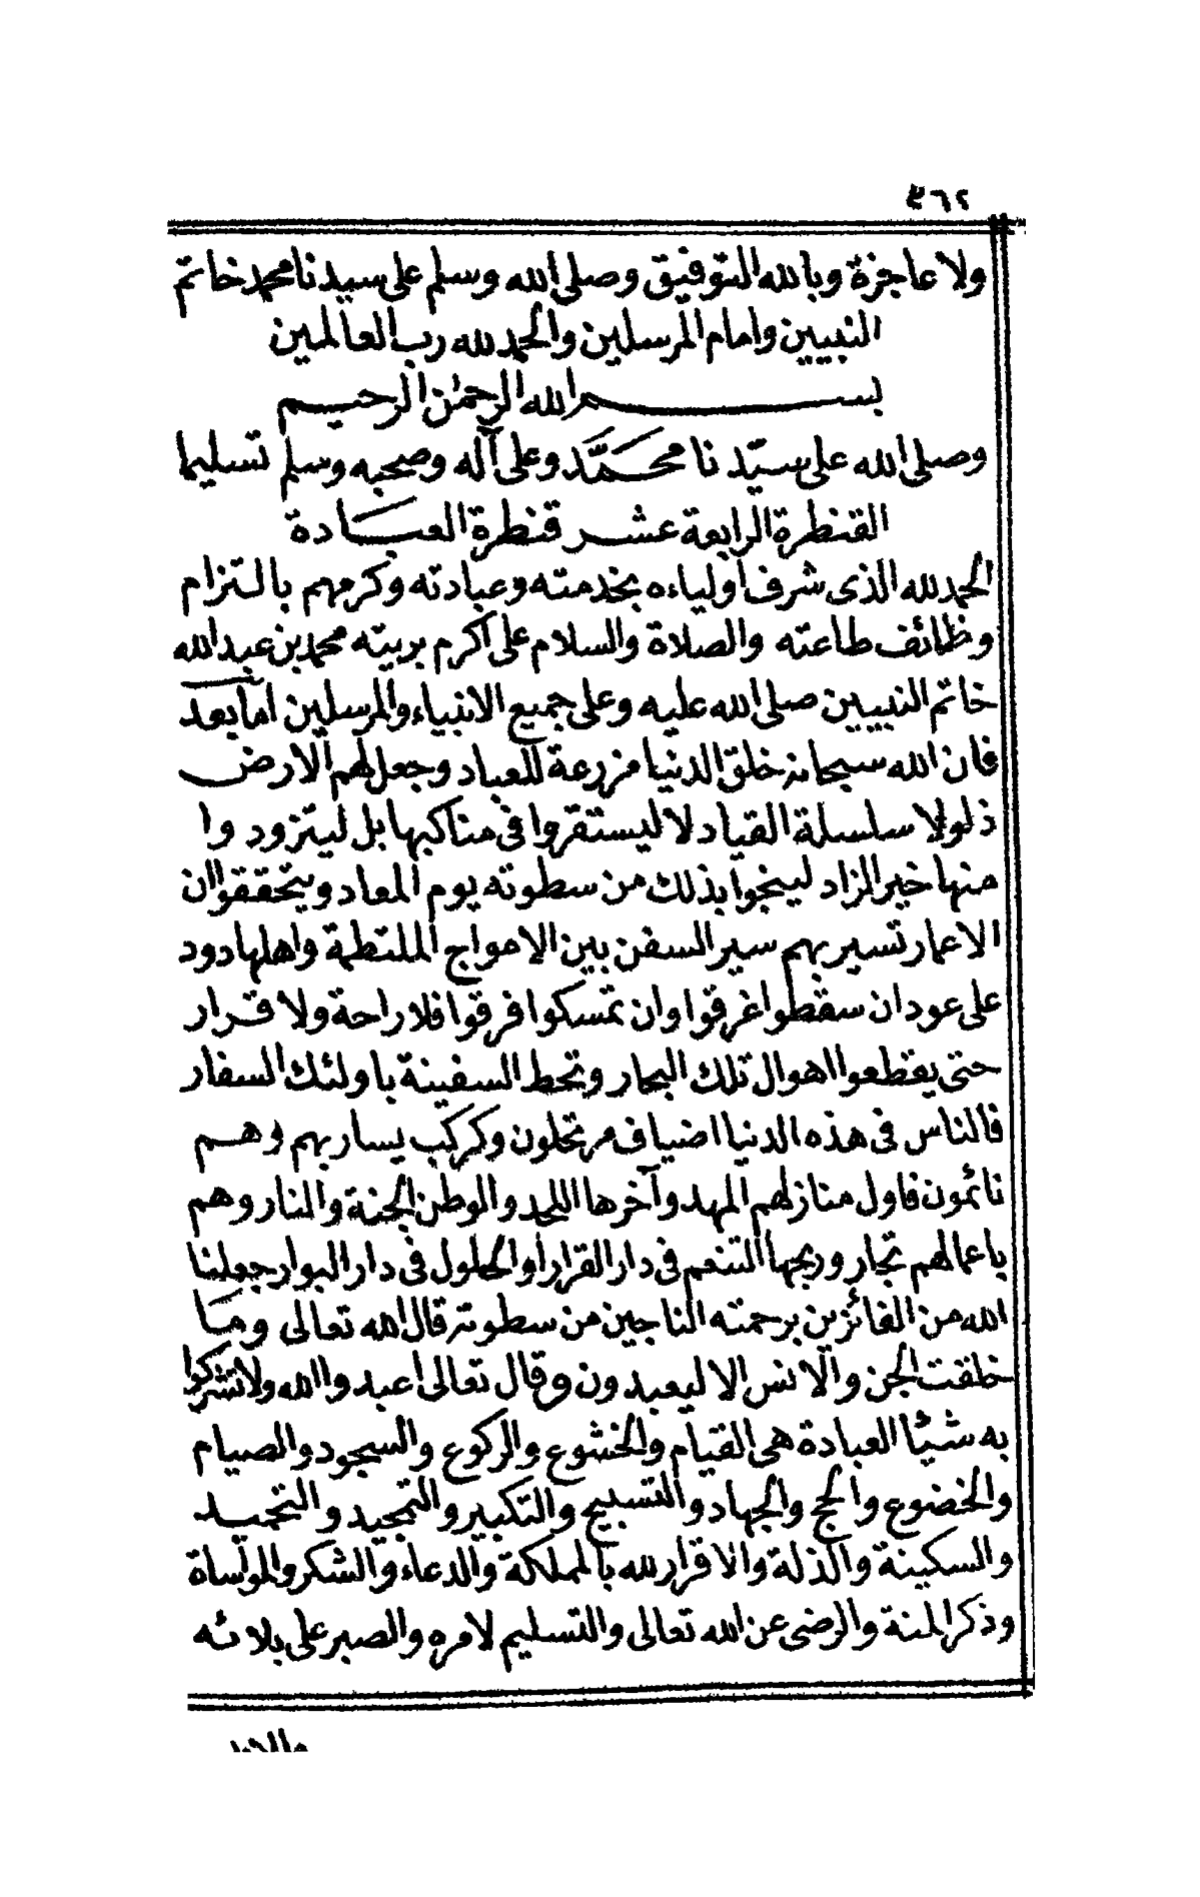 ٥٦٢
ولا عاجزة وبالله التوفيق وصلى الله وسلم على سيدنا محمد خاتم
النبيين وامام المرسلين والحمد لله رب العالمين
بسم الله الرحمن الرحيم
وصلى الله على سيّدنا محمَّد وعلى آله وصحبه وسلم تسليما
القنطرة الرابعة عشر قنطرة العبادة
الحمد لله الذى شرف اولياءه بخدمته وعبادته وكرمهم بالتزام
وظائف طاعته والصلاة والسلام على اكرم بريته محمد بن عبد الله
خاتم النبيين صلى الله عليه وعلى جميع الانبياء والمرسلين اما بعد
فان الله سبحانه خلق الدنيا مزرعة للعباد وجعل لهم الارض
ذلولا سلسلة القياد لا ليستقروا فى مناكبها بل ليتزود وا
منها خير الزاد لينجوا بذلك من سطوته يوم المعاد ويتحققوا ان
الاعمار تسير بهم سير السفن بين الامواج الملتطمة واهلها دود
على عود ان سقطوا غرقوا وان تمسكوا فرقوا فلا راحة ولا قرار
حتى يقطعوا اهوال تلك البحار وتحط السفينة باولئك السفار
فالناس فى هذه الدنيا اضياف مرتحلون وكركب يسار بهم وهم
نائمون فاول منازلهم المهد وآخرها اللحد والوطن الجنة والنار وهم
باعمالهم تجار وربحها التنعم فى دار القرار أو الحلول فى دار البوار جعلنا
الله من الفائزين برحمته الناجين من سطوته قال الله تعالى وما
خلقت الجن والانس الا ليعبدون وقال تعالى اعبدوا الله ولا تشركوا
به شيئا العبادة هى القيام والخشوع والركوع والسجود والصيام
والخضوع والحج والجهاد والتسبيح والتكبير والتمجيد والتحميد
والسكينة والذلة والاقرار لله بالمملكة والدعاء والشكر والمواساة
وذكر المنة والرضى عن الله تعالى والتسليم لامره والصبر على بلائه